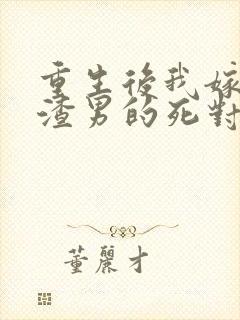 重生後我嫁
渣男的死對
董麗才